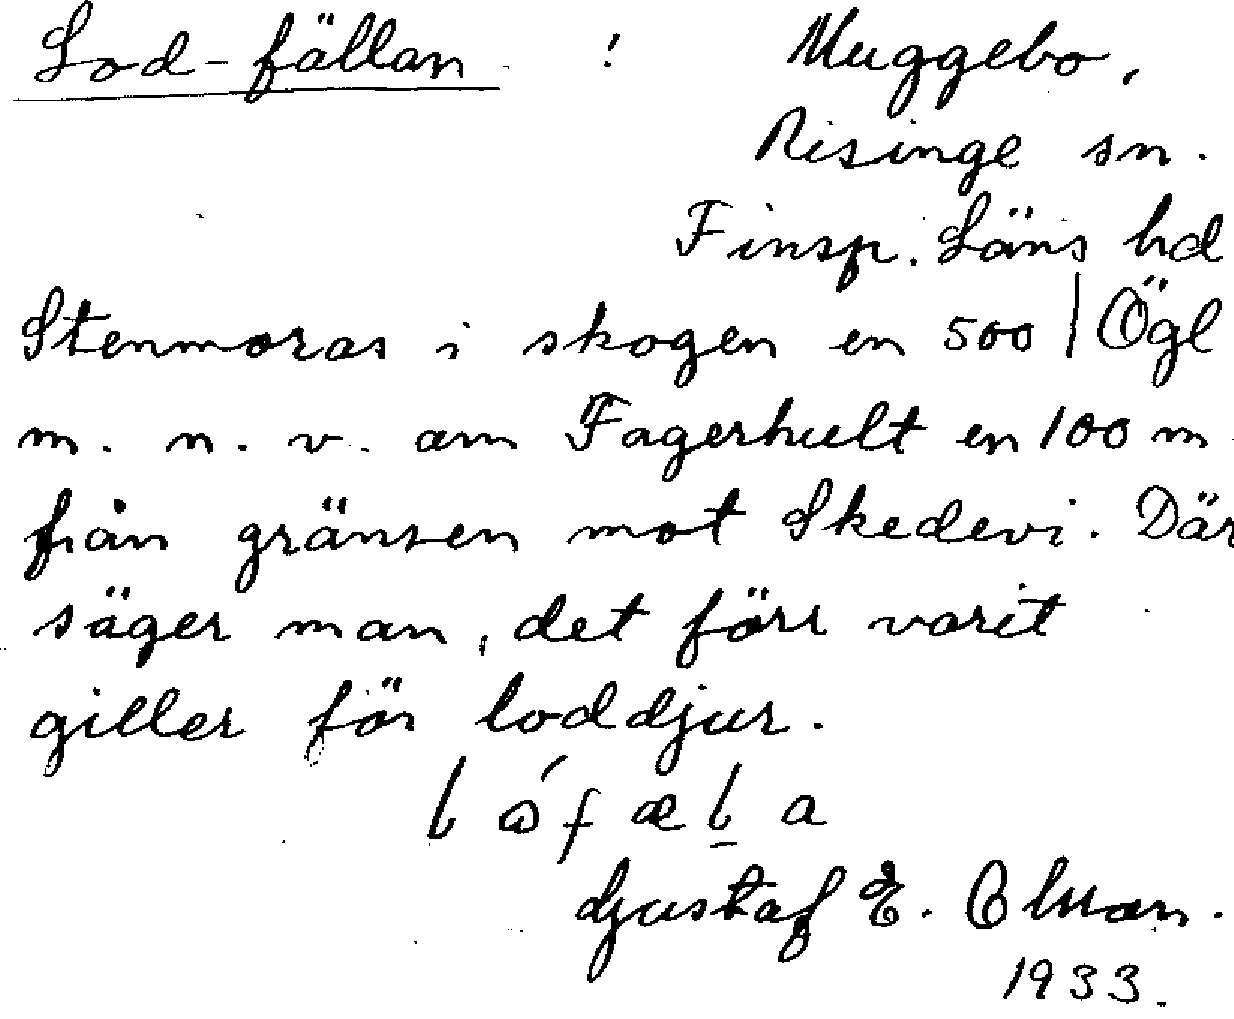 Lod-fällan ! Muggebo,
Risinge sn.
Finsp. Läns hd
Stenmoras i skogen en 500 | Ögl
m. n. v. om Fagerhult en 100 m
från gränsen mot Skedevi. Där
säger man, det förr varit
giller för loddjur.
Gustaf E.
1933.